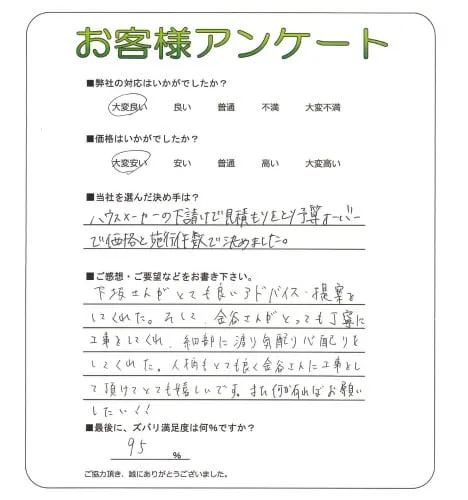 お客様アンケート
■弊社の対応はいかがでしたか？
大変良い 良い 普通 不満 大変不満
■価格はいかがでしたか？
大変安い 安い 普通 高い 大変高い
■当社を選んだ決め手は？
ハウスメーカーの下請けで見積もりをとり予算オーバー
で価格と施行件数で決めました。
■ご感想・ご要望などをお書き下さい。
下坂さんがとても良いアドバイス・提案を
してくれた。そして、金谷さんがとっても丁寧に
工事をしてくれ、細部に渡り気配り心配りを
してくれた。人柄もとても良く金谷さんに工事をし
て頂けてとても嬉しいです。また何か有ればお願い
したい!!
■最後に、ズバリ満足度は何%ですか？
95 %
ご協力頂き、誠にありがとうございました。